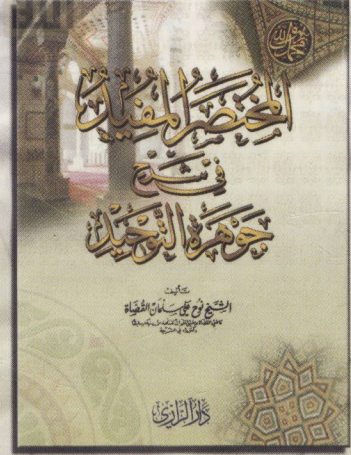 المختصر المفيد
في شرح
جوهرة التوحيد
تأليف
الشيخ نوح علي سلمان القضاة
دار الرازي